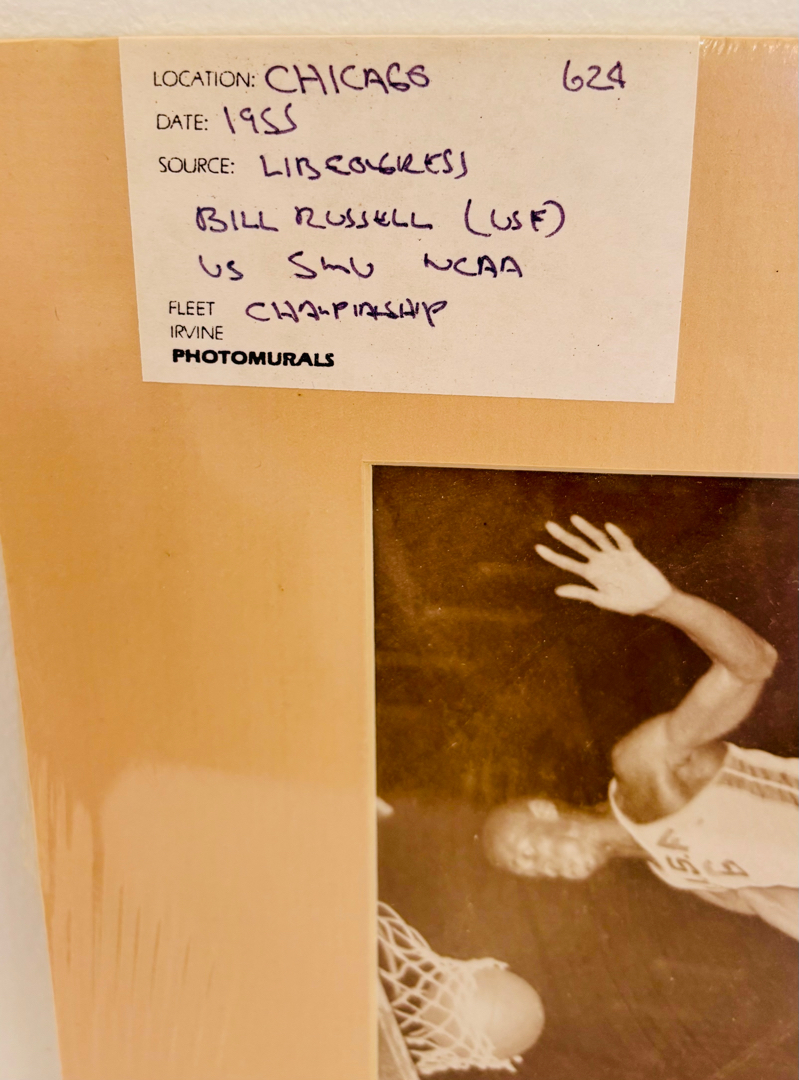 LOCATION: CHICAGO 624
DATE: 1955
SOURCE: LIB CONGRESS
BILL RUSSELL (USF)
VS SMU NCAA
CHAMPIONSHIP
FLEET
IRVINE
PHOTOMURALS